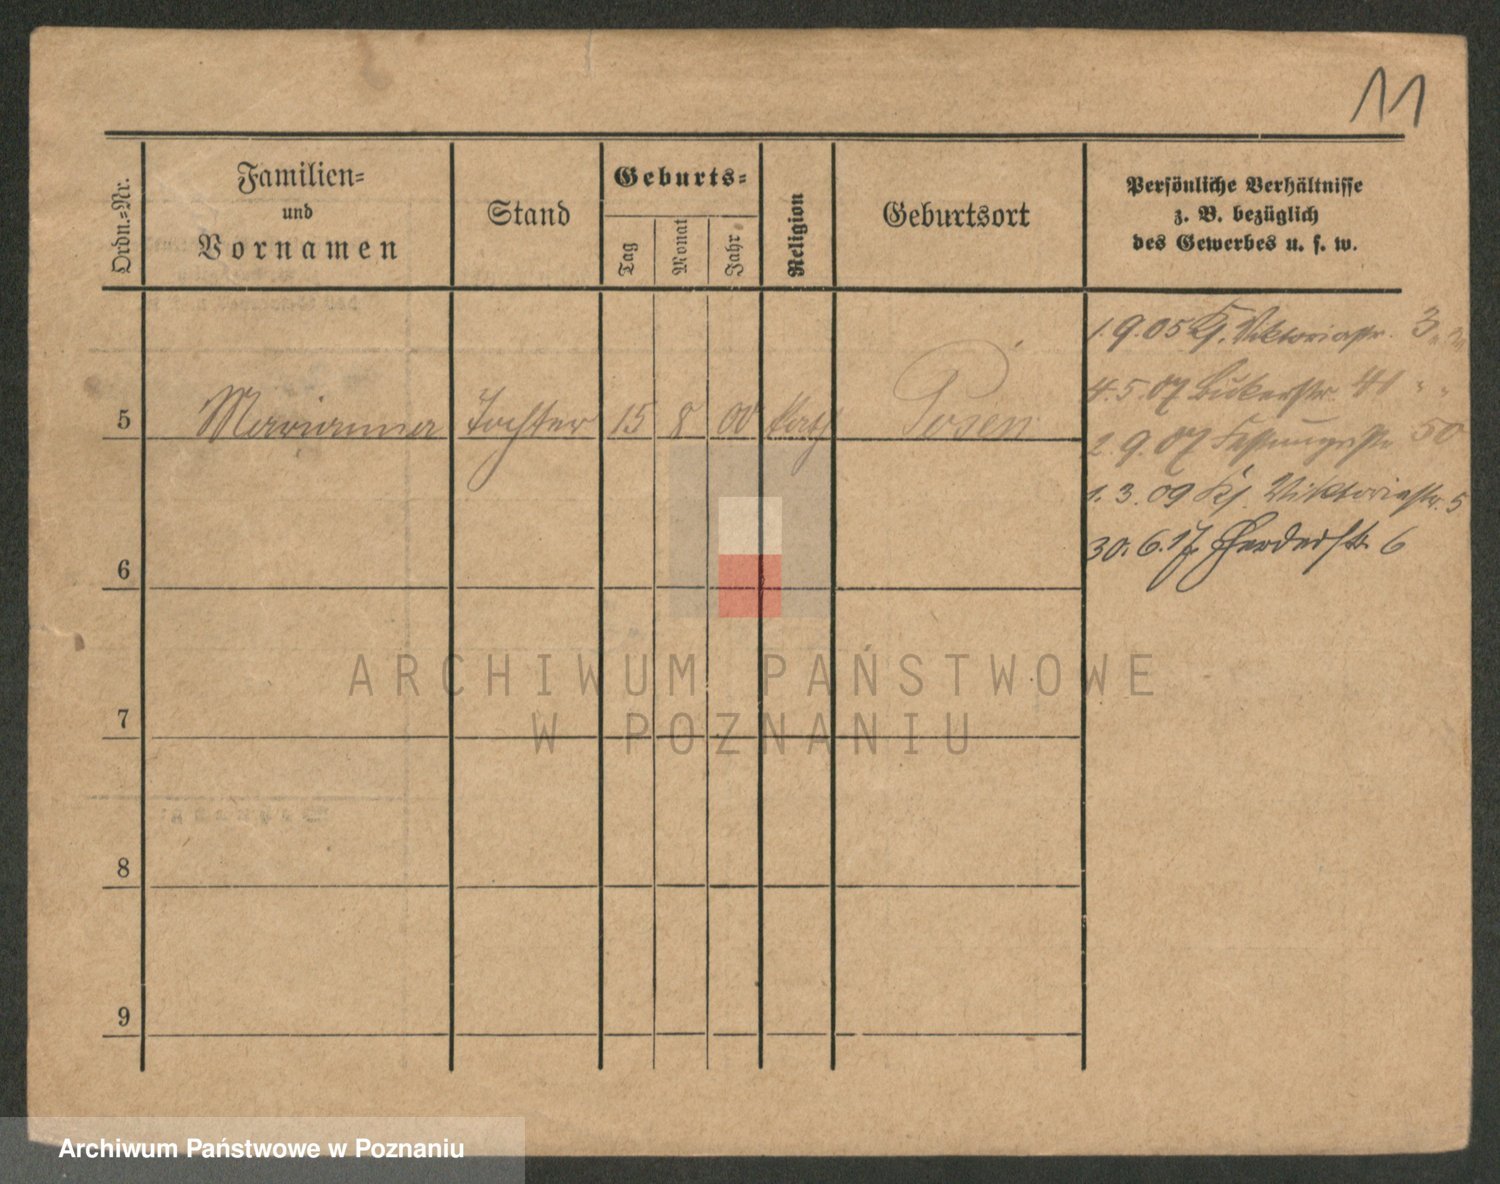 11
Ordn.-Nr.
Familien-
und
Vornamen
Stand
Geburts-
Tag
Monat
Jahr
Religion
Geburtsort
Persönliche Verhältnisse
z. B. bezüglich
des Gewerbes u. s. w.
5 Marianna Tochter 15 8 00 kath Posen
6
7
8
9
1. 9. 05 Viktoriastr. 3
4. 5. 07 Bukerstr. 41 " "
2. 9. 07 Festungsstr. 50
1. 3. 09 Viktoriastr. 5
30. 6. 17 Herderstr. 6
ARCHIWUM PAŃSTWOWE
W POZNANIU
Archiwum Państwowe w Poznaniu